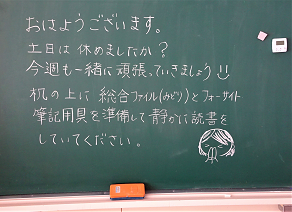 おはようございます。
土日は休めましたか？
今週も一緒に頑張っていきましょう
机の上に 総合ファイル(みどり)とフォーサイト
筆記用具を準備して静かに読書を
していてください。